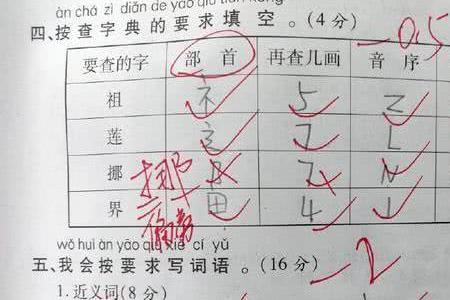 àn chá zì diǎn de yāo qiú tián kòng
四、按查字典的要求填空。(4分) -0.5
要查的字 部首 再查几画 音序
祖 礻 5 Z
莲 辶 7 L
挪 7 N
挪
界 田 4 J
wǒ huì àn yāo qiú xiě cí yǔ
五、我会按要求写词语。(16分) -2
1. 近义词(8分)